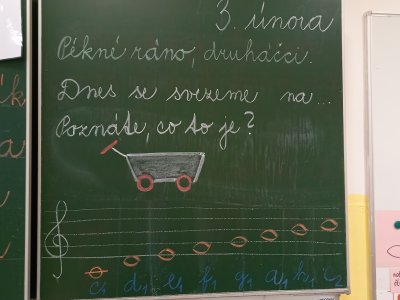 3. února
Pěkné ráno, druháčci.
Dnes se svezeme na...
Poznáte, co to je?
c¹ d¹ e¹ f¹ g¹ a¹ h¹ c²